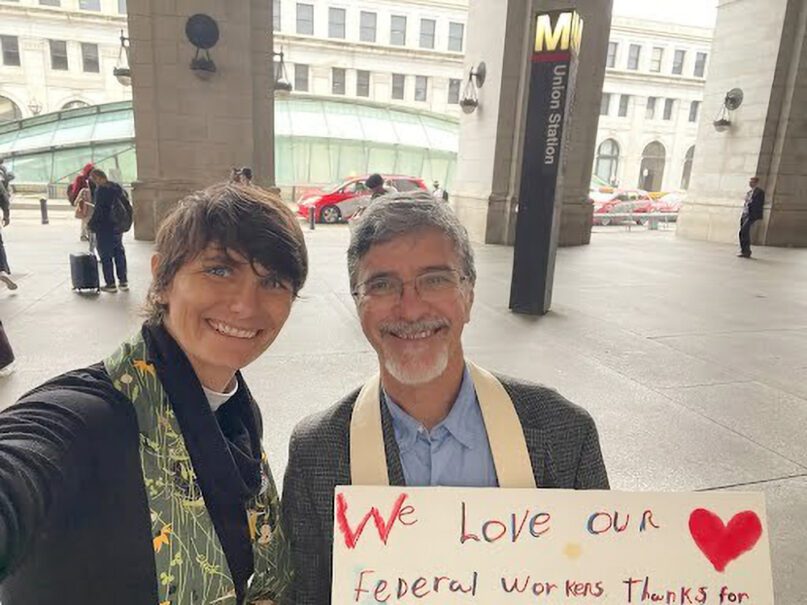 M
Union Station
We Love OUR
Federal Workers Thanks for